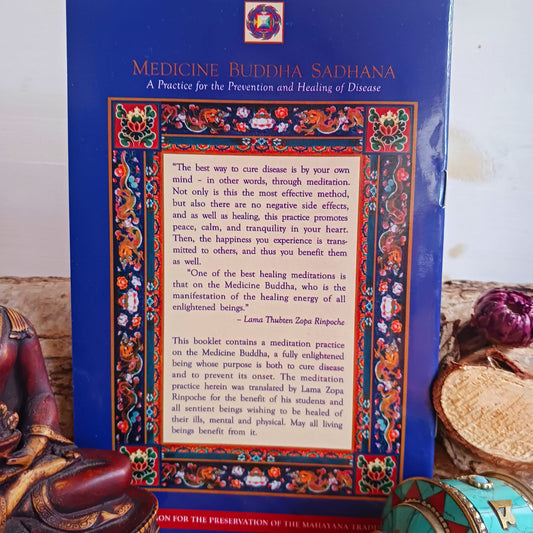 MEDICINE BUDDHA SADHANA
A Practice for the Prevention and Healing of Disease
"The best way to cure disease is by your own
mind – in other words, through meditation.
Not only is this the most effective method,
but also there are no negative side effects,
and as well as healing, this practice promotes
peace, calm, and tranquility in your heart.
Then, the happiness you experience is trans-
mitted to others, and thus you benefit them
as well.
"One of the best healing meditations is
that on the Medicine Buddha, who is the
manifestation of the healing energy of all
enlightened beings."
– Lama Thubten Zopa Rinpoche
This booklet contains a meditation practice
on the Medicine Buddha, a fully enlightened
being whose purpose is both to cure disease
and to prevent its onset. The meditation
practice herein was translated by Lama Zopa
Rinpoche for the benefit of his students and
all sentient beings wishing to be healed of
their ills, mental and physical. May all living
beings benefit from it.
FOR THE PRESERVATION OF THE MAHAYANA